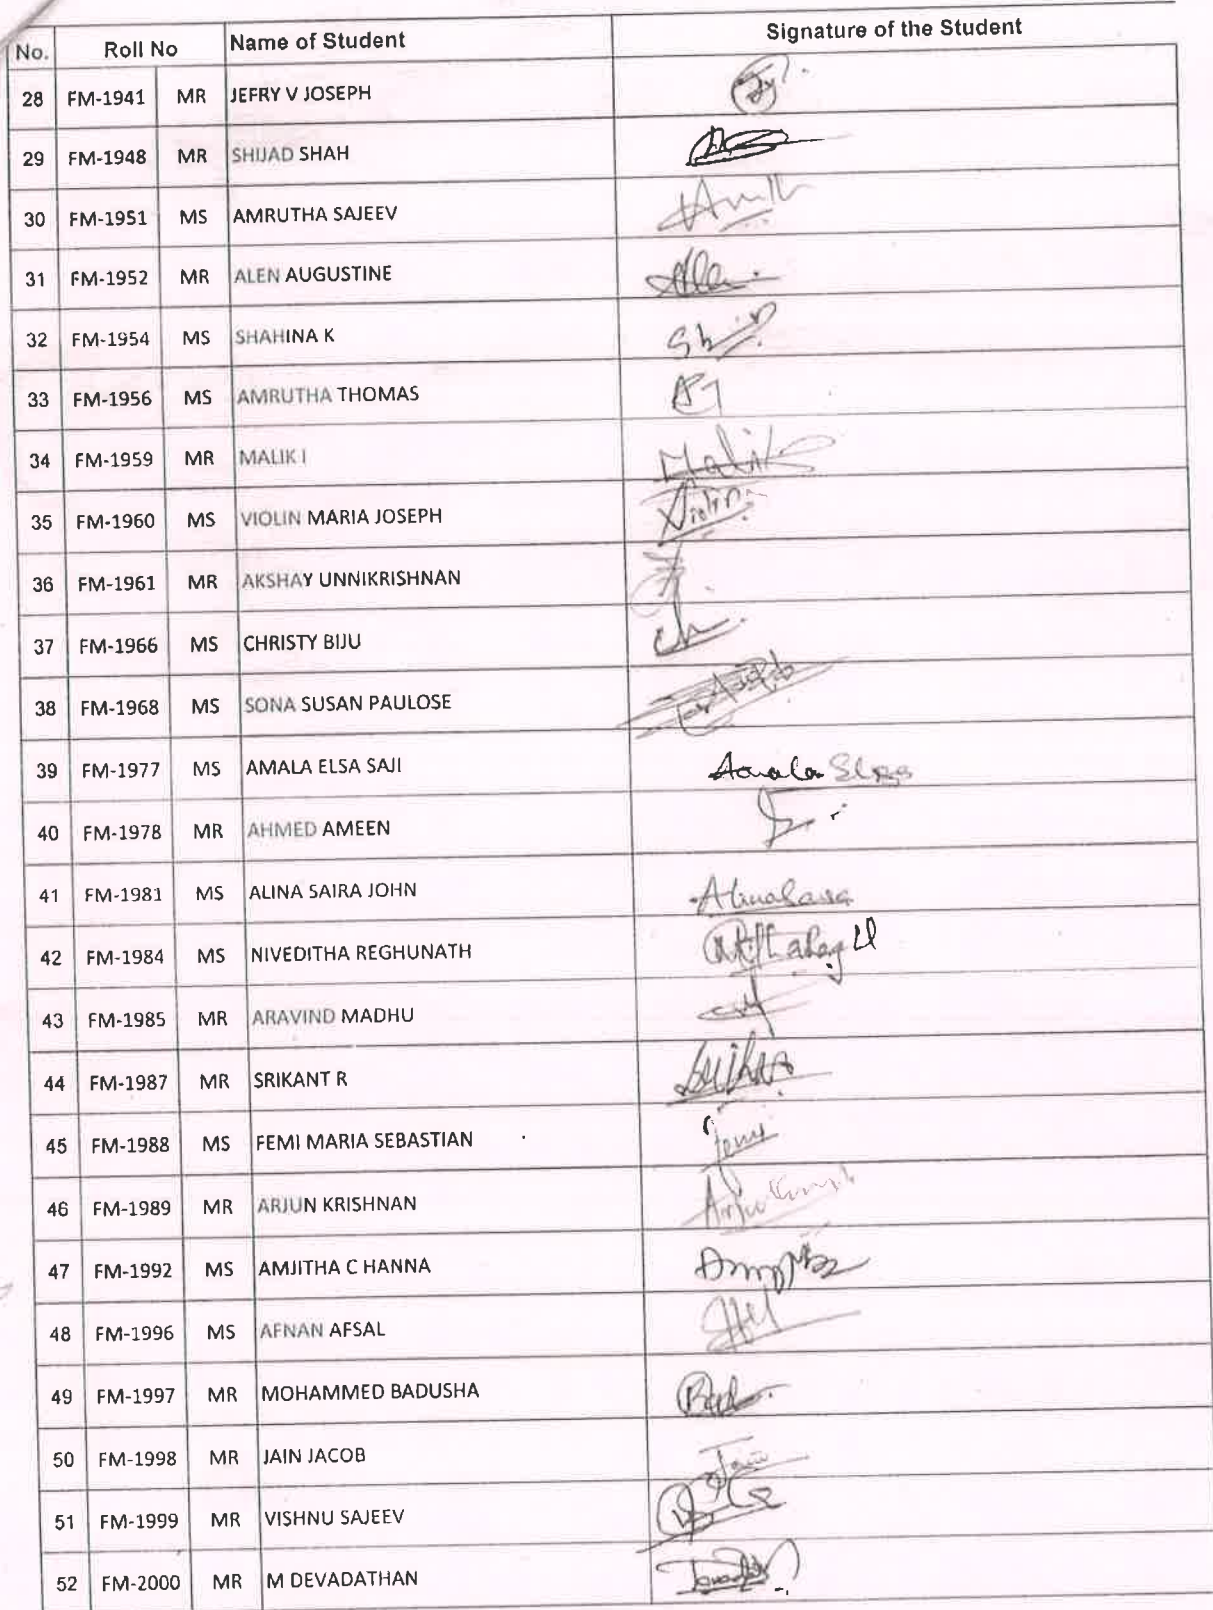 No. Roll No Name of Student Signature of the Student
28 FM-1941 MR JEFRY V JOSEPH
29 FM-1948 MR SHIJAD SHAH
30 FM-1951 MS AMRUTHA SAJEEV
31 FM-1952 MR ALEN AUGUSTINE Alen
32 FM-1954 MS SHAHINA K
33 FM-1956 MS AMRUTHA THOMAS
34 FM-1959 MR MALIK I Malik
35 FM-1960 MS VIOLIN MARIA JOSEPH Violin
36 FM-1961 MR AKSHAY UNNIKRISHNAN
37 FM-1966 MS CHRISTY BIJU
38 FM-1968 MS SONA SUSAN PAULOSE
39 FM-1977 MS AMALA ELSA SAJI Amala Elsa
40 FM-1978 MR AHMED AMEEN
41 FM-1981 MS ALINA SAIRA JOHN
42 FM-1984 MS NIVEDITHA REGHUNATH
43 FM-1985 MR ARAVIND MADHU
44 FM-1987 MR SRIKANT R
45 FM-1988 MS FEMI MARIA SEBASTIAN Femi
46 FM-1989 MR ARJUN KRISHNAN
47 FM-1992 MS AMJITHA C HANNA
48 FM-1996 MS AFNAN AFSAL
49 FM-1997 MR MOHAMMED BADUSHA
50 FM-1998 MR JAIN JACOB Jain
51 FM-1999 MR VISHNU SAJEEV
52 FM-2000 MR M DEVADATHAN